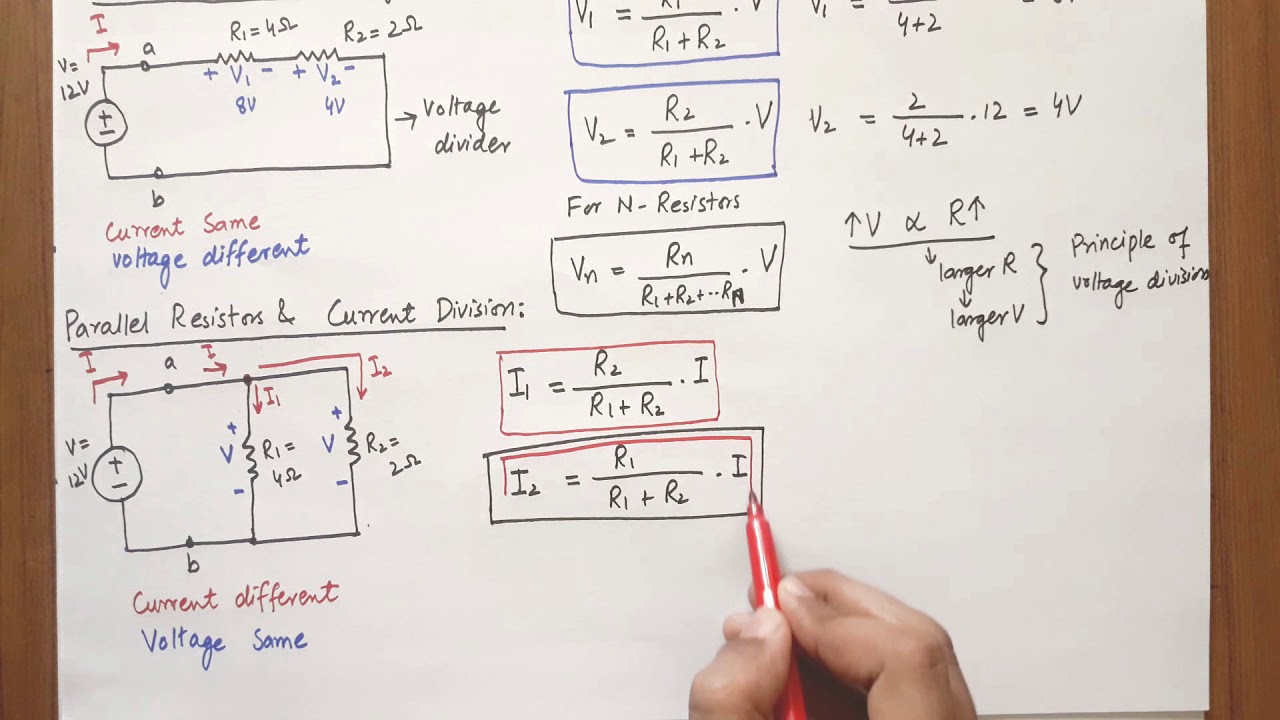 I
a
R₁ = 4Ω
R₂ = 2Ω
V =
12V
+ V₁ -
+ V₂ -
8V
4V
+
-
→ Voltage
divider
b
Current Same
Voltage different
V₁ = R₁ / R₁ + R₂ . V
V₁ =
4+2
V₂ = R₂ / R₁ + R₂ . V
V₂ = 2 / 4+2 . 12 = 4V
For N - Resistors
Vn = Rn / R₁+R₂+--RN . V
↑V ∝ R↑
↓ larger R
↓
larger V
} Principle of
voltage division
Parallel Resistors & Current Division:
I
a
I
I₁
I₂
V =
12V
+
-
+
V
-
R₁ =
4Ω
+
V
-
R₂ =
2Ω
b
Current different
Voltage Same
I₁ = R₂ / R₁ + R₂ . I
I₂ = R₁ / R₁ + R₂ . I